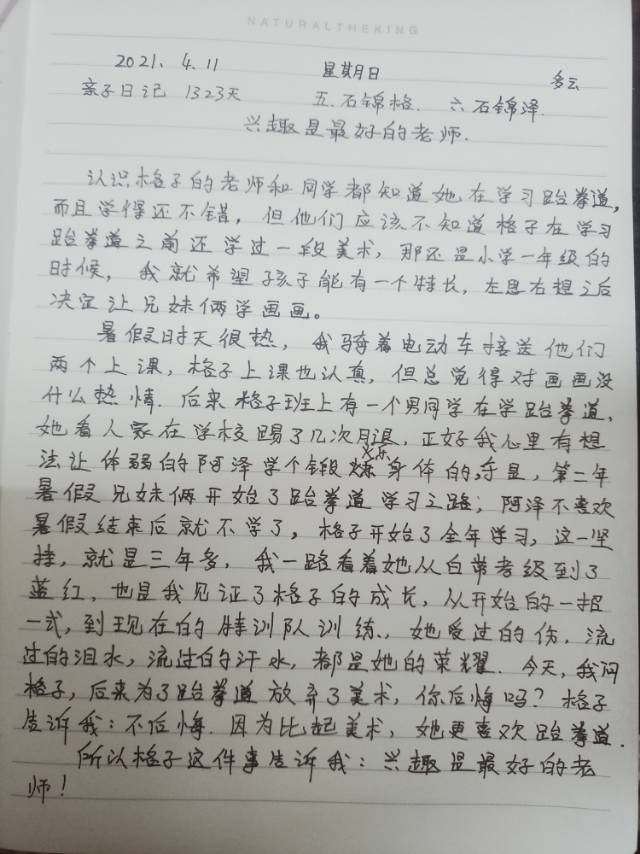 NATURALTHEKING
2021. 4. 11 星期日 多云
亲子日记 1323天 五.石锦格. 六石锦泽.
兴趣是最好的老师.
认识格子的老师和同学都知道她在学习跆拳道,
而且学得还不错,但他们应该不知道格子在学习
跆拳道之前还学过一段美术,那还是小学一年级的
时候,我就希望孩子能有一个特长,左思右想之后
决定让兄妹俩学画画。
暑假时天很热,我骑着电动车接送他们
两个上课,格子上课也认真,但总觉得对画画没
什么热情.后来格子班上有一个男同学在学跆拳道,
她看人家在学校踢了几次腿,正好我心里有想
法让体弱的阿泽学个锻炼身体的,于是,第二年
暑假兄妹俩开始了跆拳道学习之路;阿泽不喜欢
暑假结束后就不学了,格子开始了全年学习,这一坚
持,就是三年多,我一路看着她从白带考级到了
蓝红,也是我见证了格子的成长,从开始的一招
一式,到现在的特训队训练.,她受过的伤.流
过的泪水,流过的汗水,都是她的荣耀.今天,我问
格子,后来为了跆拳道放弃了美术,你后悔吗?格子
告诉我:不后悔.因为比起美术,她更喜欢跆拳道.
所以格子这件事告诉我:兴趣是最好的老
师!